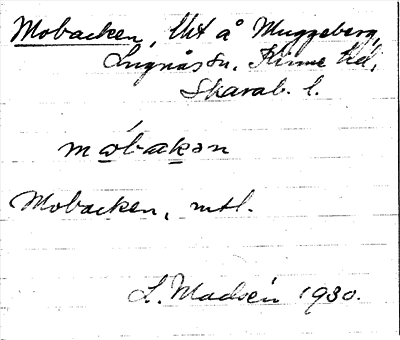 Mobacken, Utt å Muggeberg,
Lugnås sn. Kinne hd,
Skarab. l.
móbakən
Mobacken, mtl.
L. Madsén 1930.